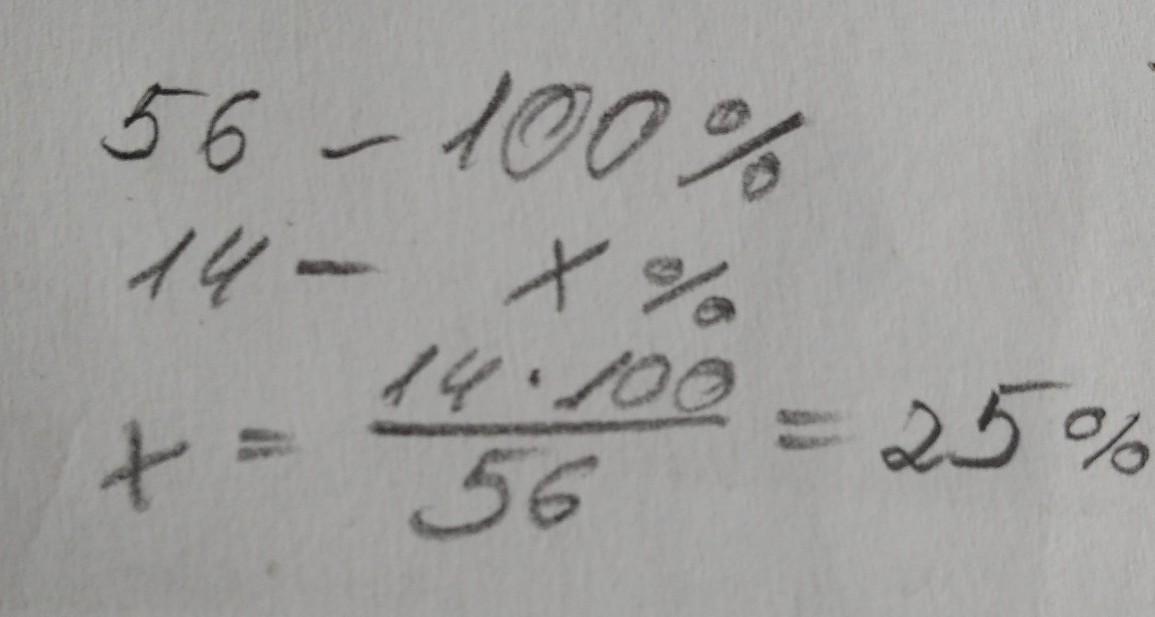 56 - 100%
14 - x%
x = 14 · 100 / 56 = 25%